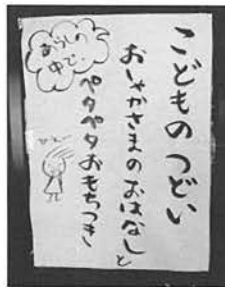 こどものつどい
おしゃかさまのおはなしと
ペタペタおもちつき
あらしの
中で、